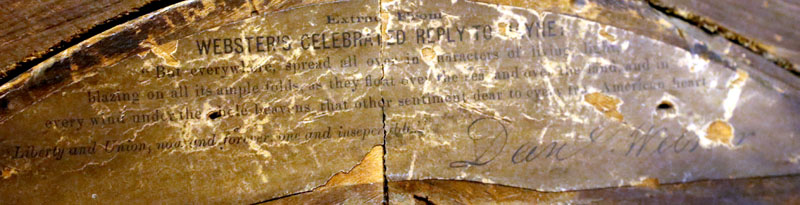 Extract From
WEBSTER'S CELEBRATED REPLY TO HAYNE.
"But everywhere, spread all over in characters of living light,
blazing on all its ample folds, as they float over the sea, and over the land, and in
every wind under the whole heavens, that other sentiment dear to every true American heart
"Liberty and Union, now and forever, one and inseperable."
Dan'l Webster